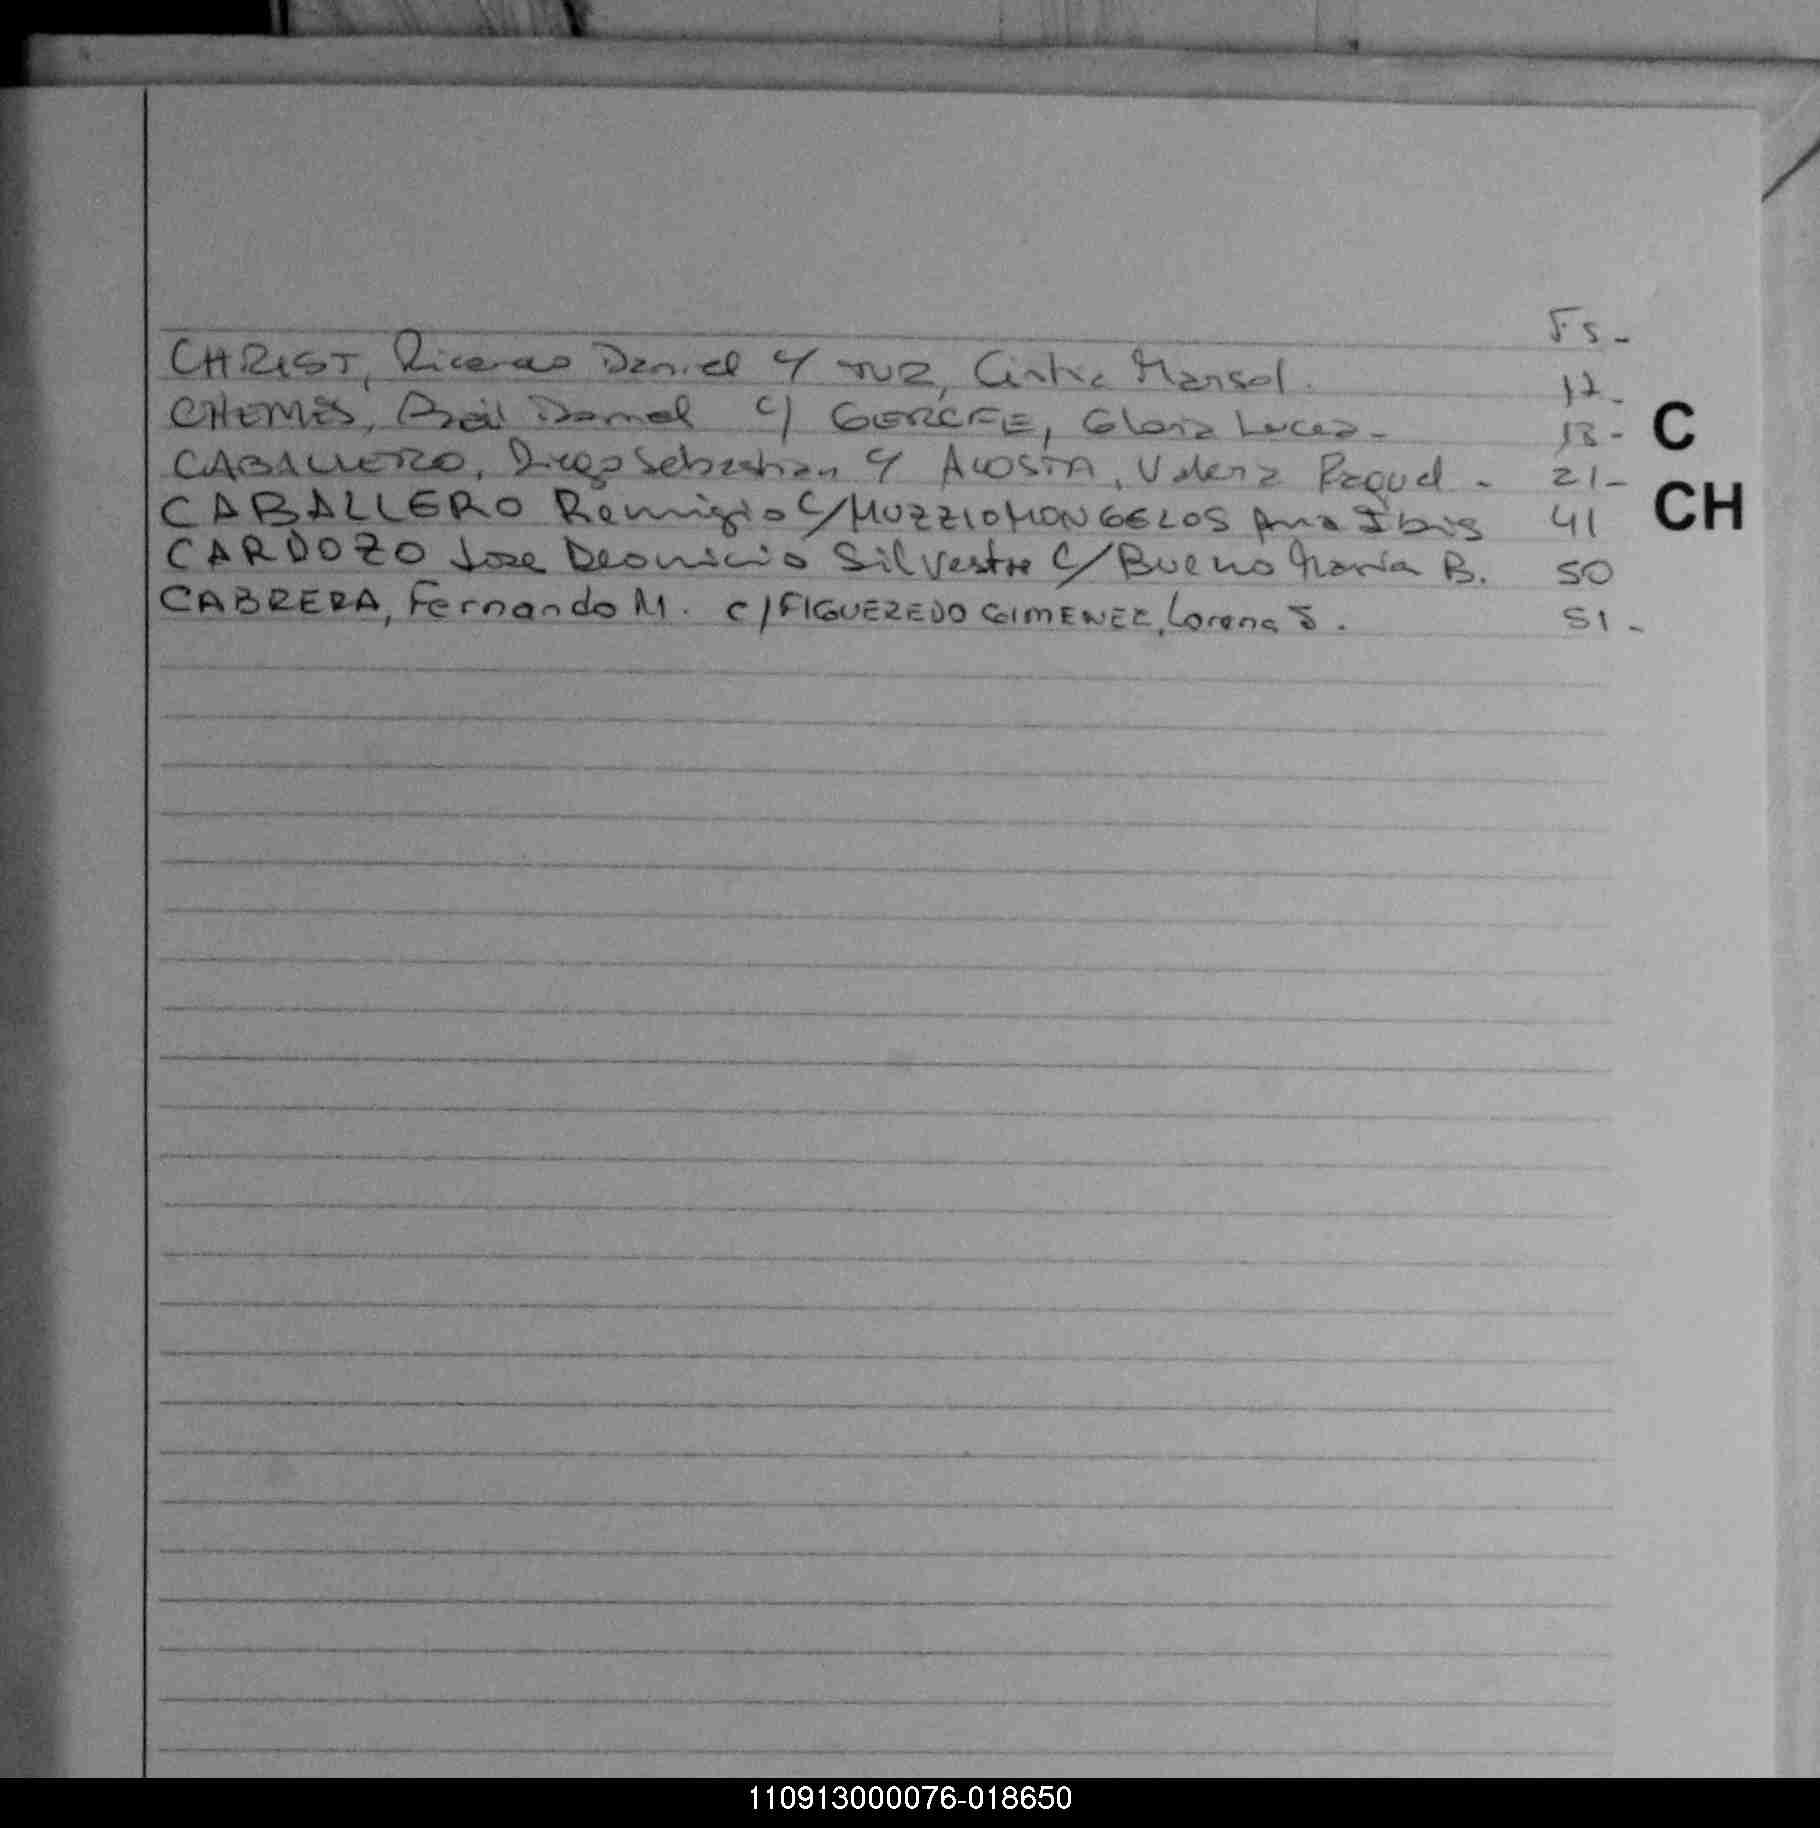 Fs-
CHRIST, Ricardo Daniel c/ TUZ, Cintia Marisol. 17-
CHEMES, Daniel c/ GERCFE, Gloria Lucea- 18-
CABALLERO, Diego Sebastian c/ ACOSTA, Valeria Raquel - 21-
C
CABALLERO Remigio c/ MUZZIO MONGELOS Ana Ibis 41
CH
CARDOZO Jose Deonicio Silvestre c/ Bueno María B. 50
CABRERA, Fernando M. c/ FIGUEREDO GIMENEZ, Lorena S. 51-
110913000076-018650